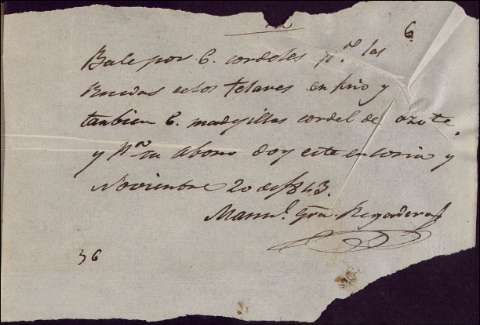 6
Bale por 6. cordeles p.ª las
Ruedas de los telares en hilo y
tanbien 6. madegillas cordel de azote,
y p.ª su abono doy este en Coria y
Noviembre 20 de 1843.
Man.l Gra. Regadera
36